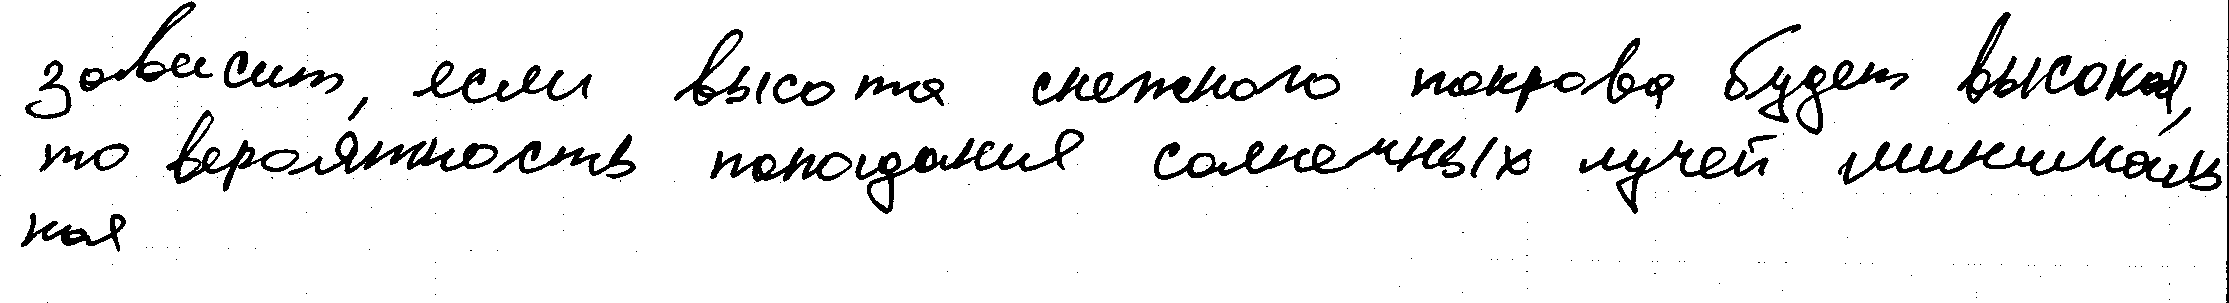 зависит, если высота снежного покрова будет высокая,
то вероятность попадания солнечных лучей минималь
ная